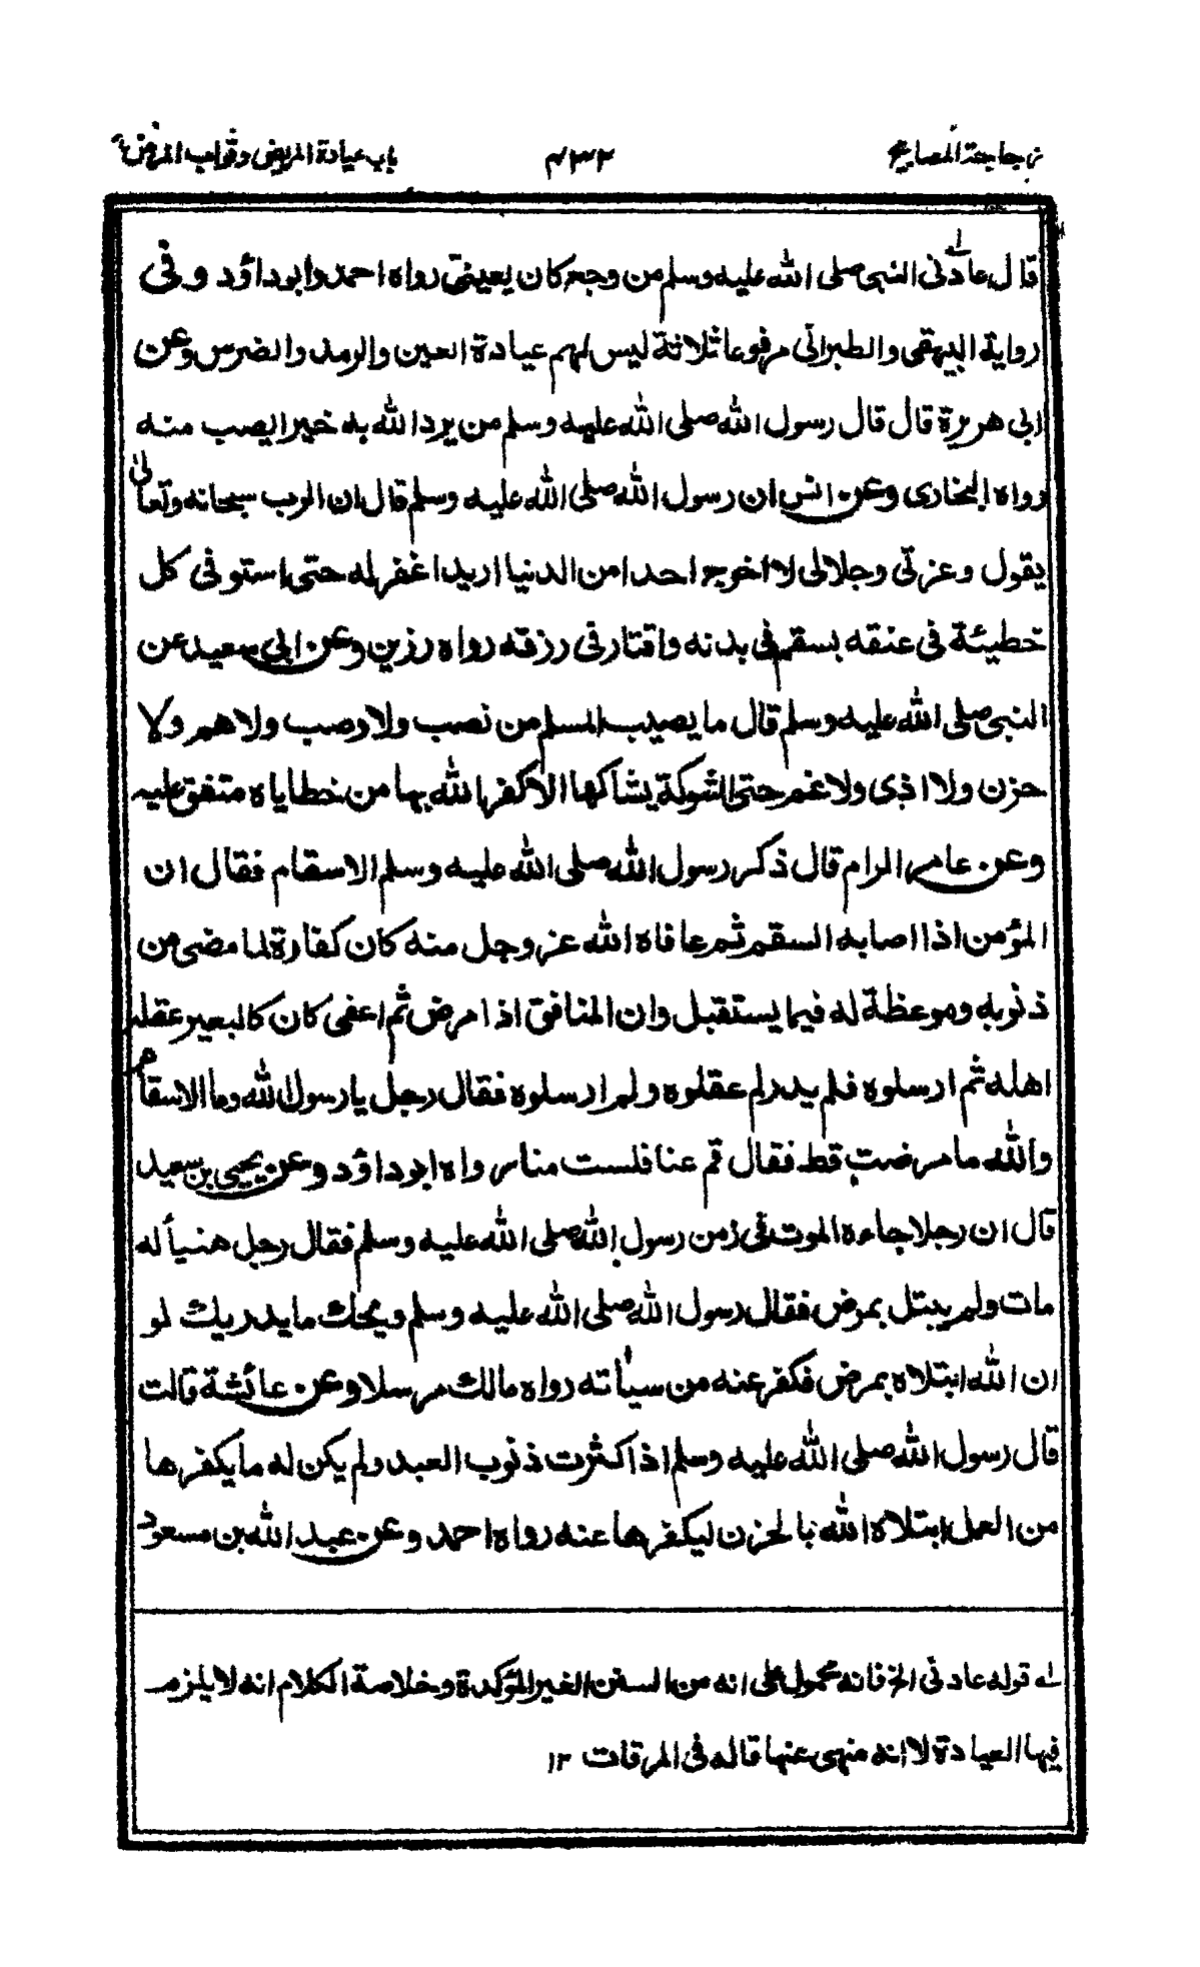 زجاجة المصابيح ٤٣٢ باب عيادة المريض وثواب المرض
قال عادني النبي صلى الله عليه وسلم من وجع كان يعيني رواه احمد وابوداؤد وفى
رواية البيهقى والطبرانى مرفوعا ثلاثة ليس لهم عيادة العين والرمد والضرس وعن
ابى هريرة قال قال رسول الله صلى الله عليه وسلم من يرد الله به خيرا يصب منه
رواه البخارى وعن انس ان رسول الله صلى الله عليه وسلم قال ان الرب سبحانه وتعالى
يقول وعزتى وجلالى لا اخرج احدا من الدنيا اريد اغفر له حتى استوفى كل
خطيئة فى عنقه بسقم فى بدنه واقتار فى رزقه رواه رزين وعن ابى سعيد عن
النبى صلى الله عليه وسلم قال ما يصيب المسلم من نصب ولا وصب ولا هم ولا
حزن ولا اذى ولا غم حتى الشوكة يشاكها الا كفر الله بها من خطاياه متفق عليه
وعن عامر الرام قال ذكر رسول الله صلى الله عليه وسلم الاسقام فقال ان
المؤمن اذا اصابه السقم ثم عافاه الله عز وجل منه كان كفارة لما مضى من
ذنوبه وموعظة له فيما يستقبل وان المنافق اذا مرض ثم اعفى كان كالبعير عقله
اهله ثم ارسلوه فلم يدر لم عقلوه ولم ارسلوه فقال رجل يا رسول الله وما الاسقام
والله ما مرضت قط فقال قم عنا فلست منا رواه ابوداؤد وعن يحيى بن سعيد
قال ان رجلا جاءه الموت فى زمن رسول الله صلى الله عليه وسلم فقال رجل هنيأ له
مات ولم يبتل بمرض فقال رسول الله صلى الله عليه وسلم ويحك ما يدريك لو
ان الله ابتلاه بمرض فكفر عنه من سيأته رواه مالك مرسلا وعن عائشة قالت
قال رسول الله صلى الله عليه وسلم اذا كثرت ذنوب العبد ولم يكن له ما يكفرها
من العمل ابتلاه الله بالحزن ليكفرها عنه رواه احمد وعن عبد الله بن مسعود
له قوله عادنى الخ فانه محمول على انه من السنن الغير المؤكدة وخلاصة الكلام انه لا يلزم
فيها العيادة لا انه منهى عنها قاله فى المرقات ١٢